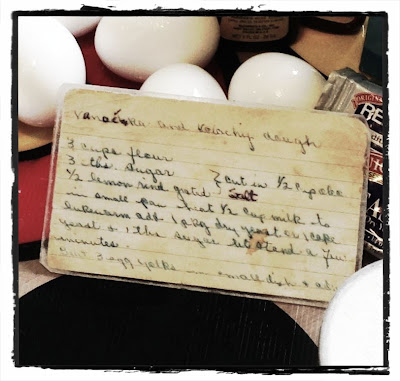 Vanočka and Kolachy dough
3 cups flour
3 tbs. sugar } cut in ½ cup oleo
½ lemon rind grated } Salt
in small pan heat ½ cup milk to
lukewarm add 1 pkg dry yeast or 1 cake
yeast + 1 tbs sugar let stand a few
minutes.
3 egg yolks in small dish + add
ORIGINAL